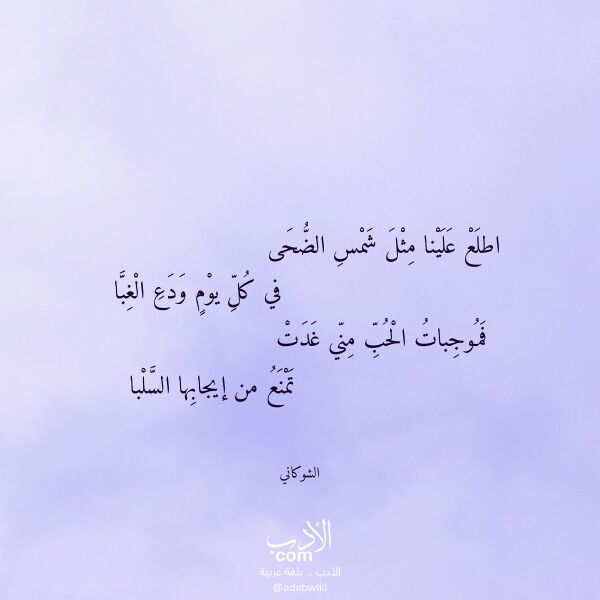 اطلَعْ عَلَيْنا مِثْلَ شَمْسِ الضُّحَى
في كُلِّ يوْمٍ وَدَعِ الْغِبَّا
فَمُوجِباتُ الْحُبِّ مِنّي غَدَتْ
تَمْنَعُ من إيجابِها السَّلْبا
الشوكاني
الأدب
com
الأدب .. بلغة عربية
@adabwiki